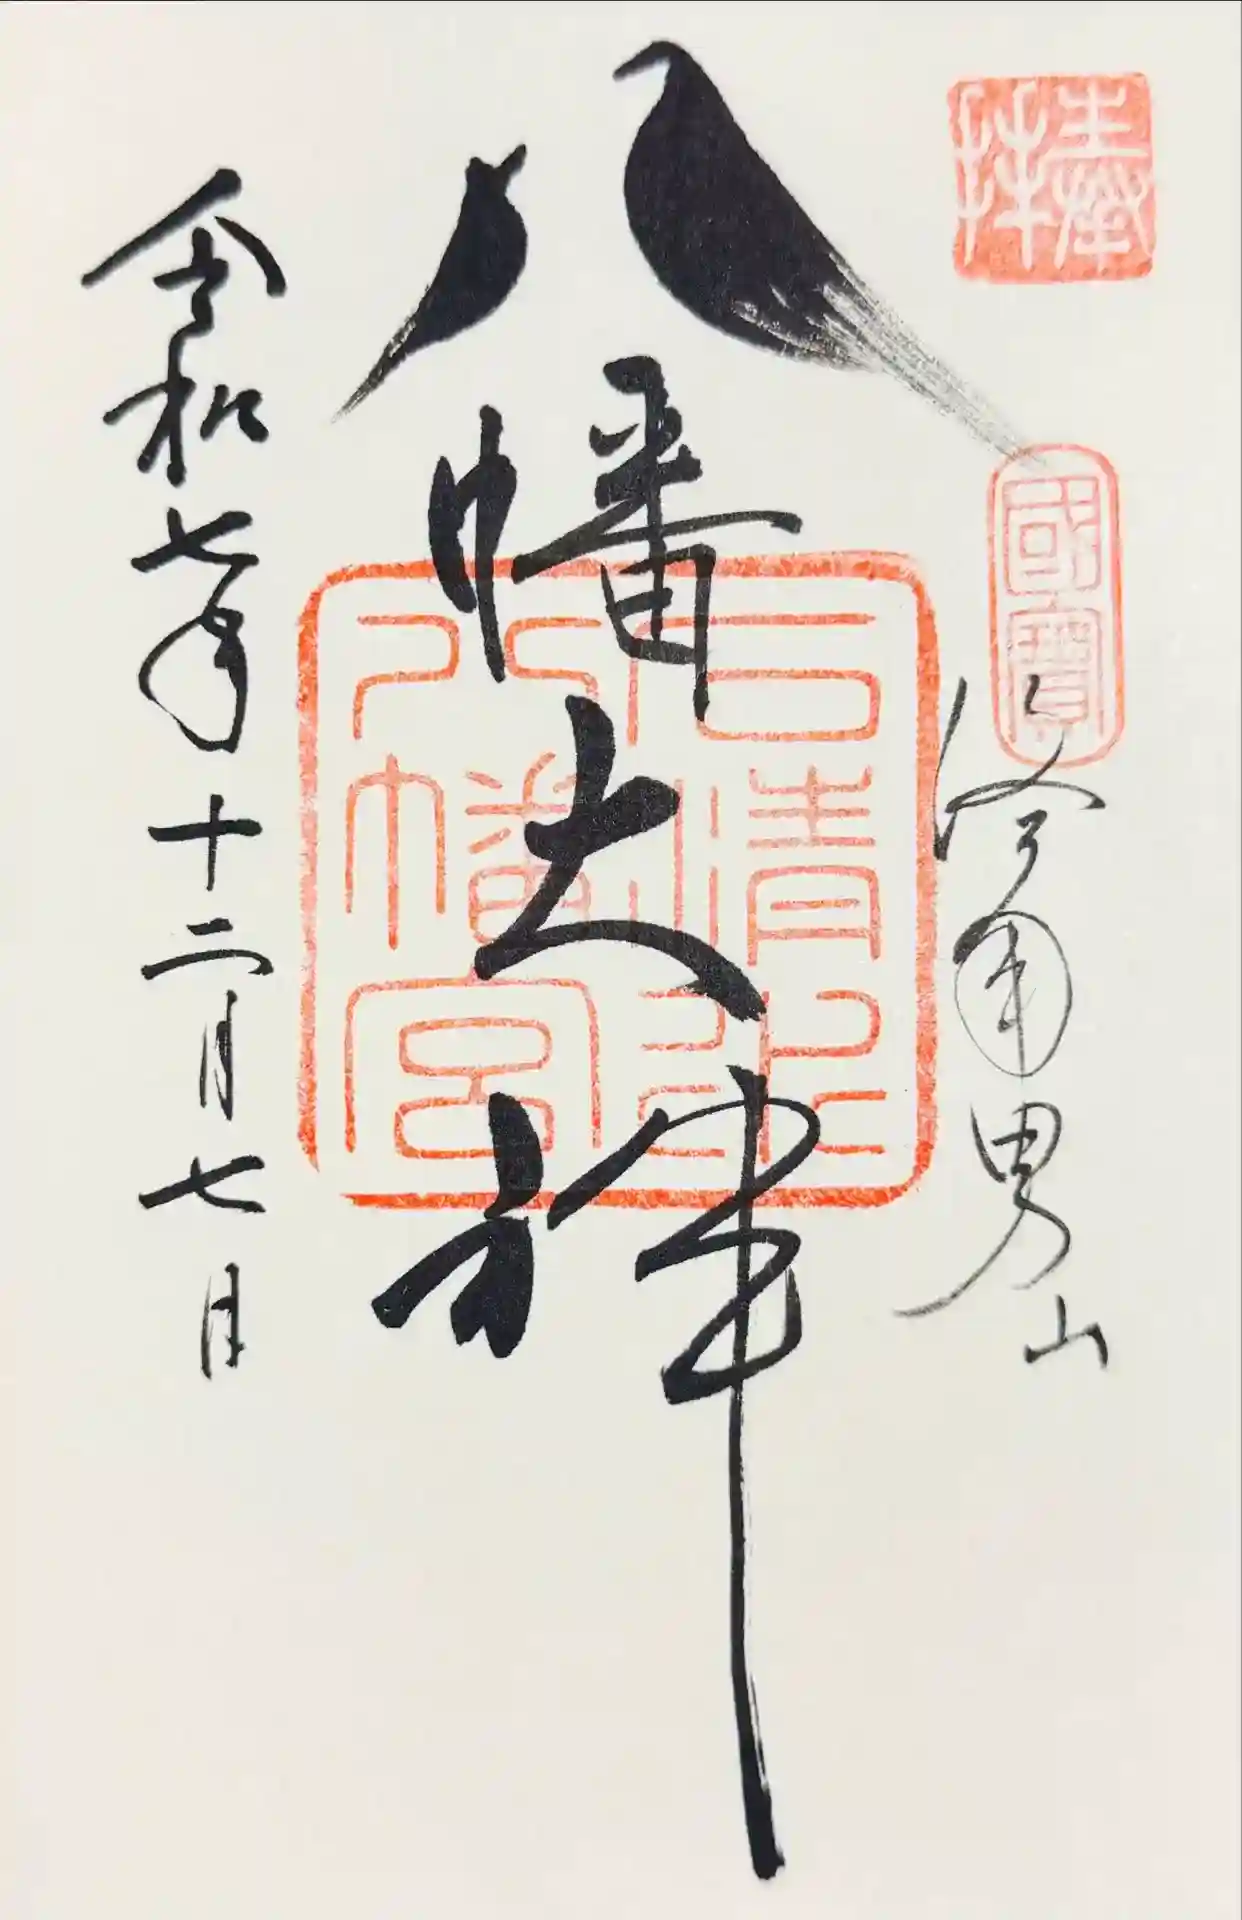 奉拝
國寶
洛南男山
八幡大神
石清水
八幡宮
令和七年十二月七日